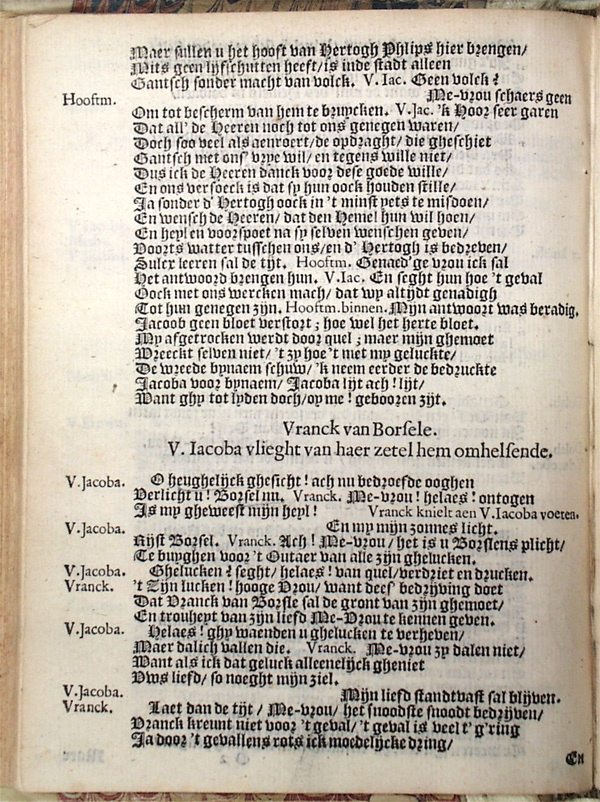 Maer sullen u het hooft van Hertogh Phlips hier brengen/
Mits geen lijfschutten heeft/ is inde stadt alleen
Gantsch sonder macht van volck. V. Iac. Geen volck?
Hooftm. Me-vrou schaers geen
Om tot bescherm van hem te bruycken. V. Jac. 'k Hoor seer garen
Dat all' de Heeren noch tot ons genegen waren/
Doch soo veel als aenroert/ de opdraght/ die gheschiet
Gantsch met ons' vrye wil/ en tegens wille niet/
Dus ick de Heeren danck voor dese goede wille/
En ons versoeck is dat sy hun oock houden stille/
Ja sonder d' Hertogh oock in 't minst yets te misdoen/
En wensch de Heeren/ dat den Hemel hun wil hoen/
En heyl en voorspoet na sy selven wenschen geven/
Voorts watter tusschen ons/ en d' Hertogh is bedreven/
Sulcx leeren sal de tijt. Hooftm. Genaed'ge vrou ick sal
Het antwoord brengen hun. V. Iac. En seght hun hoe 't geval
Oock met ons wercken mach/ dat wy altijdt genadigh
Tot hun genegen zijn. Hooftm. binnen. Mijn antwoort was beradig.
Jacoob geen bloet verstort; hoe wel het herte bloet.
My afgetrocken werdt door quel; maer mijn ghemoet
Wreeckt selven niet/ 't zy hoe 't met my geluckte/
De wreede bynaem schuw/ 'k neem eerder de bedruckte
Jacoba voor bynaem/ Jacoba lijt ach! lijt/
Want ghy tot lyden doch/ oy me! gebooren zijt.
Vranck van Borsele.
V. Iacoba vlieght van haer zetel hem omhelsende.
V. Jacoba. O heughelijck ghesicht! ach nu bedroefde ooghen
Verlicht u! Borsel nu. Vranck. Me-vrou! helaes! ontogen
Is my gheweest mijn heyl! Vranck knielt aen V. Iacoba voeten.
V. Jacoba. En my mijn zonnes licht.
Rijst Borsel. Vranck. Ach! Me-vrou/ het is u Borslens plicht/
Te buyghen voor 't Outaer van alle zijn ghelucken.
V. Jacoba. Ghelucken? seght/ helaes! van quel/ verdriet en drucken.
Vranck. 't Zijn lucken! hooge Vrou/ want dees' bedrijving doet
Dat Vranck van Borsle sal de gront van zijn ghemoet/
En trouheyt van zijn liefd Me-Vrou te kennen geven.
V. Jacoba. Helaes! ghy waenden u ghelucken te verheven/
Maer dalich vallen die. Vranck. Me-vrou zy dalen niet/
Want als ick dat geluck alleenelijck gheniet
Vws liefd/ so noeght mijn ziel.
V. Jacoba. Mijn liefd standtvast sal blijven.
Vranck. Laet dan de tijt/ Me-vrou/ het snoodste snoodt bedrijven/
Vranck kreunt niet voor 't geval/ 't geval is veel t' g'ring
Ja door 't gevallens rots ick moedelijcke dring/
En